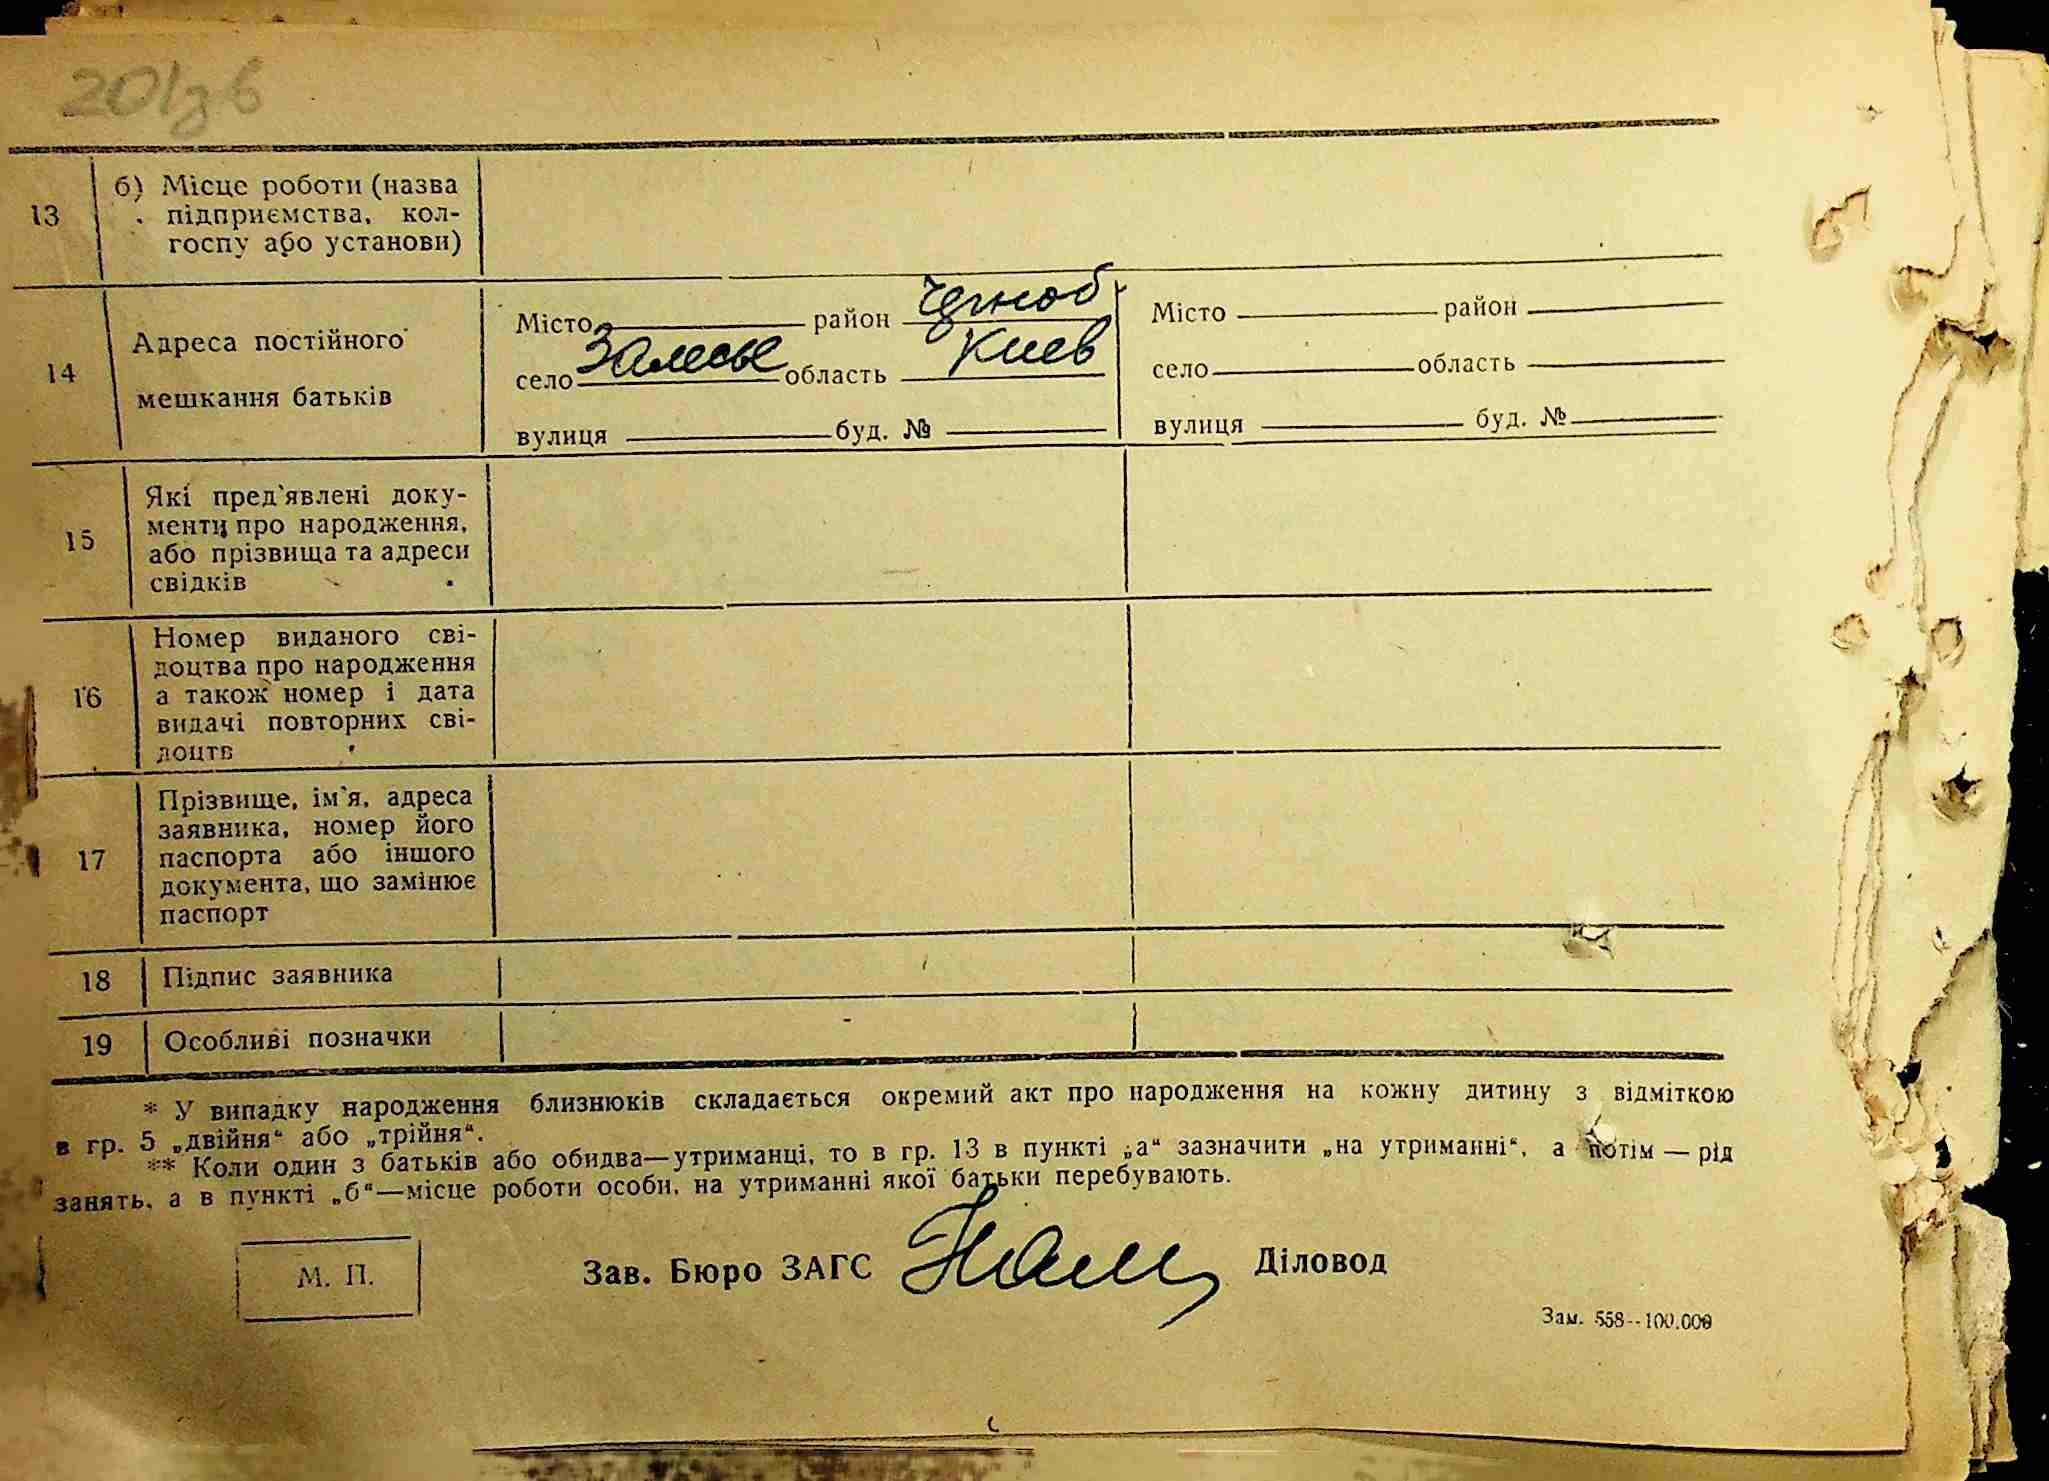 201зв
13
б) Місце роботи (назва
підприємства, кол-
госпу або установи)
14
Адреса постійного
мешкання батьків
Місто район Черноб
село Залесье область Киев
вулиця буд. №
Місто район
село область
вулиця буд. №
15
Які пред'явлені доку-
менти про народження,
або прізвища та адреси
свідків
16
Номер виданого сві-
доцтва про народження
а також номер і дата
видачі повторних сві-
доцтв
17
Прізвище, ім'я, адреса
заявника, номер його
паспорта або іншого
документа, що замінює
паспорт
18
Підпис заявника
19
Особливі позначки
* У випадку народження близнюків складається окремий акт про народження на кожну дитину з відміткою
в гр. 5 „двійня“ або „трійня“.
** Коли один з батьків або обидва—утриманці, то в гр. 13 в пункті „а“ зазначити „на утриманні“, а потім — рід
занять, а в пункті „б“—місце роботи особи, на утриманні якої батьки перебувають.
М. П.
Зав. Бюро ЗАГС Діловод
Зам. 558--100.000